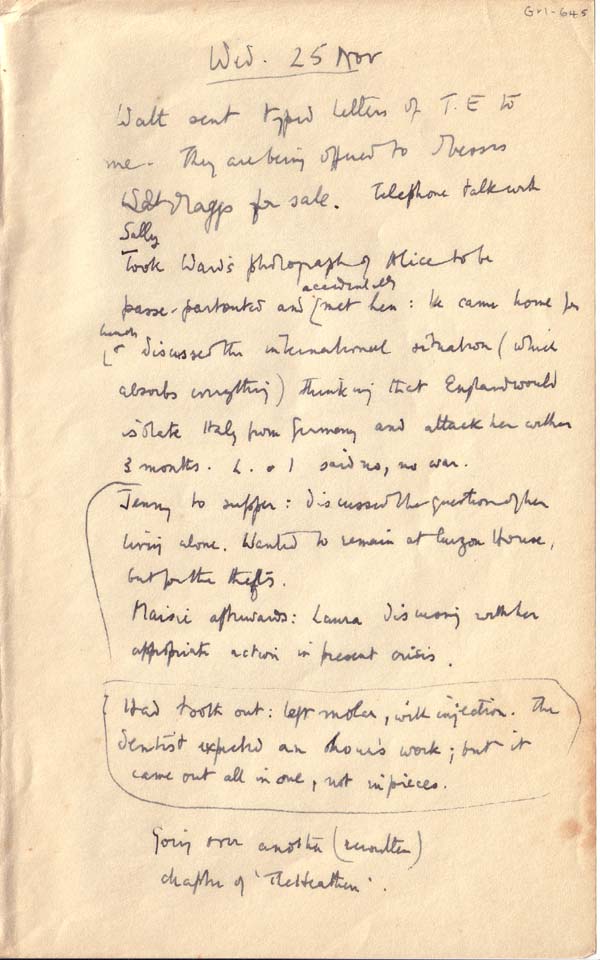 GrI-645
Wed. 25 Nov
Walt sent typed letters of T.E to
me. They are being offered to
Maggs for sale. Telephone talk with
Sally
Took Ward's photograph of Alice to be
accidentally
passe-partouted and met him: he came home for
lunch
discussed the international situation (which
absorbs everything) thinking that England would
isolate Italy from Germany and attack her within
3 months. L. & I said no, no war.
Jenny to supper: discussed the question of her
living alone. Wanted to remain at Curzon House,
but for the thefts.
Maisie afterwards: Laura discussing with her
appropriate action in present crisis.
Had tooth out: left molar, with injection. The
dentist expected an hour's work; but it
came out all in one, not in pieces.
Going over another (rewritten)
chapter of 'The Heathen'.